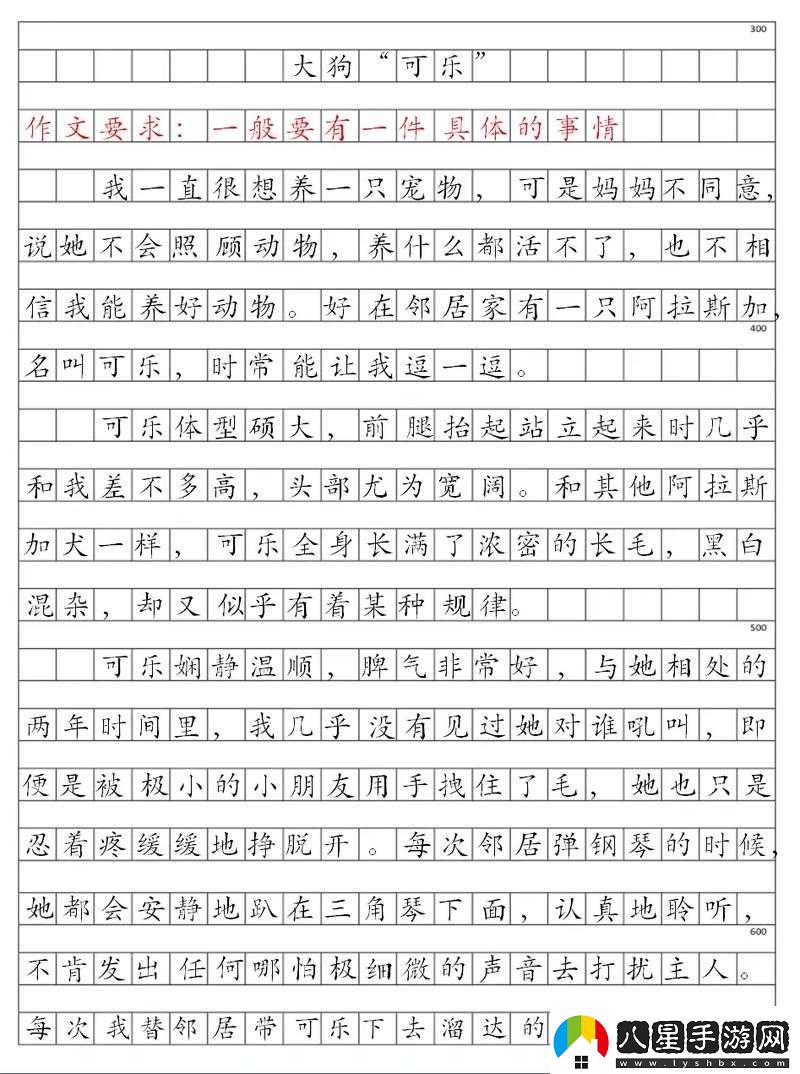 300
大狗“可乐”
作文要求：一般要有一件具体的事情
我一直很想养一只宠物，可是妈妈不同意，
说她不会照顾动物，养什么都活不了，也不相
信我能养好动物。好在邻居家有一只阿拉斯加，
400
名叫可乐，时常能让我逗一逗。
可乐体型硕大，前腿抬起站立起来时几乎
和我差不多高，头部尤为宽阔。和其他阿拉斯
加犬一样，可乐全身长满了浓密的长毛，黑白
混杂，却又似乎有着某种规律。
500
可乐娴静温顺，脾气非常好，与她相处的
两年时间里，我几乎没有见过她对谁吼叫，即
便是被极小的小朋友用手拽住了毛，她也只是
忍着疼缓缓地挣脱开。每次邻居弹钢琴的时候，
她都会安静地趴在三角琴下面，认真地聆听，
600
不肯发出任何哪怕极细微的声音去打扰主人。
每次我替邻居带可乐下去溜达的
八星手游网
www.lyshbx.com